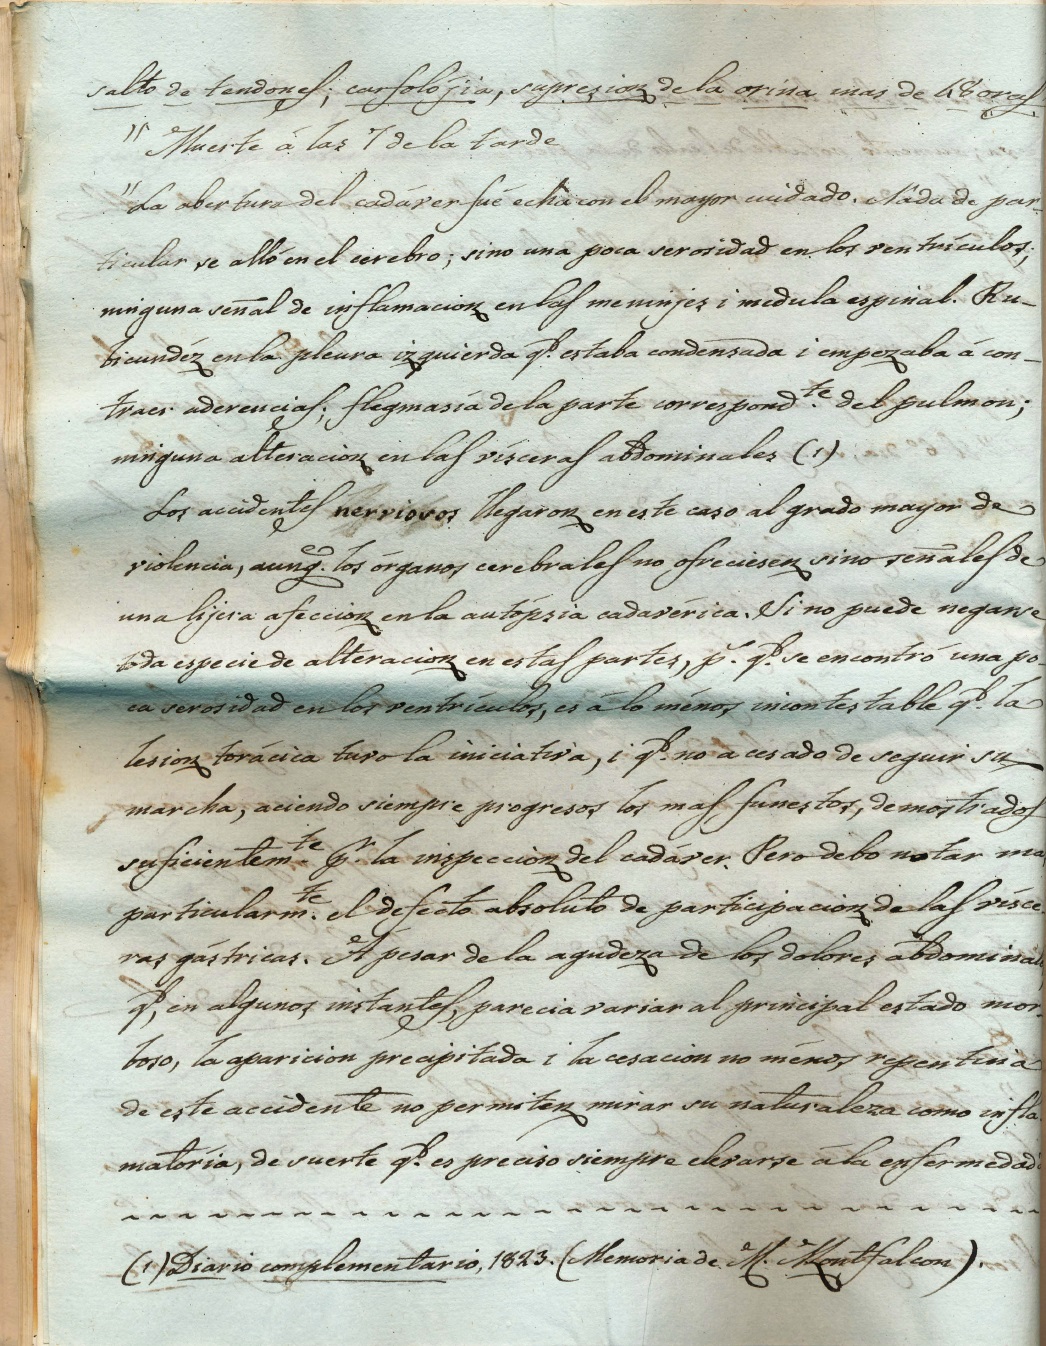 salto de tendones; carfolójia, supresion de la orina mas de 48 oras.
" Muerte á las 7 de la tarde
" La abertura del cadáver fué echa con el mayor cuidado. Náda de par-
ticular se alló en el cerebro; sino una poca serosidad en los ventrículos;
ninguna señal de inflamacion en las meninjes i medula espinal. Ru-
bicundéz en la pleura izquierda q.e estaba condensada i empezaba á con-
traer aderencias; flegmasía de la parte correspond.te del pulmon;
ninguna alteracion en las vísceras abdominales (1)
Los accidentes nerviosos llegaron en este caso al grado mayor de
violencia, aunq.e los órganos cerebrales no ofreciesen sino señales de
una lijera afeccion en la autópsia cadavérica. Si no puede negarse
toda especie de alteracion en estas partes, p.s q.e se encontró una po-
ca serosidad en los ventrículos, es á lo ménos incontestable q.e la
lesion torácica tuvo la iniciativa, i q.e no a cesado de seguir su
marcha, aciendo siempre progresos los mas funestos, demostrados
suficientem.te p.r la inspeccion del cadáver. Pero debo notar mas
particularm.te el defecto absoluto de participacion de las vísce-
ras gástricas. A pesar de la agudeza de los dolores abdominales
q.e, en algunos instantes, parecia variar al principal estado mor-
boso, la aparicion precipitada i la cesacion no ménos repentina
de este accidente no permiten mirar su naturaleza como infla-
matória, de suerte q.e es preciso siempre elevarse á la enfermedad
(1) Diario complementario, 1823. (Memoria de M. Montfalcon).